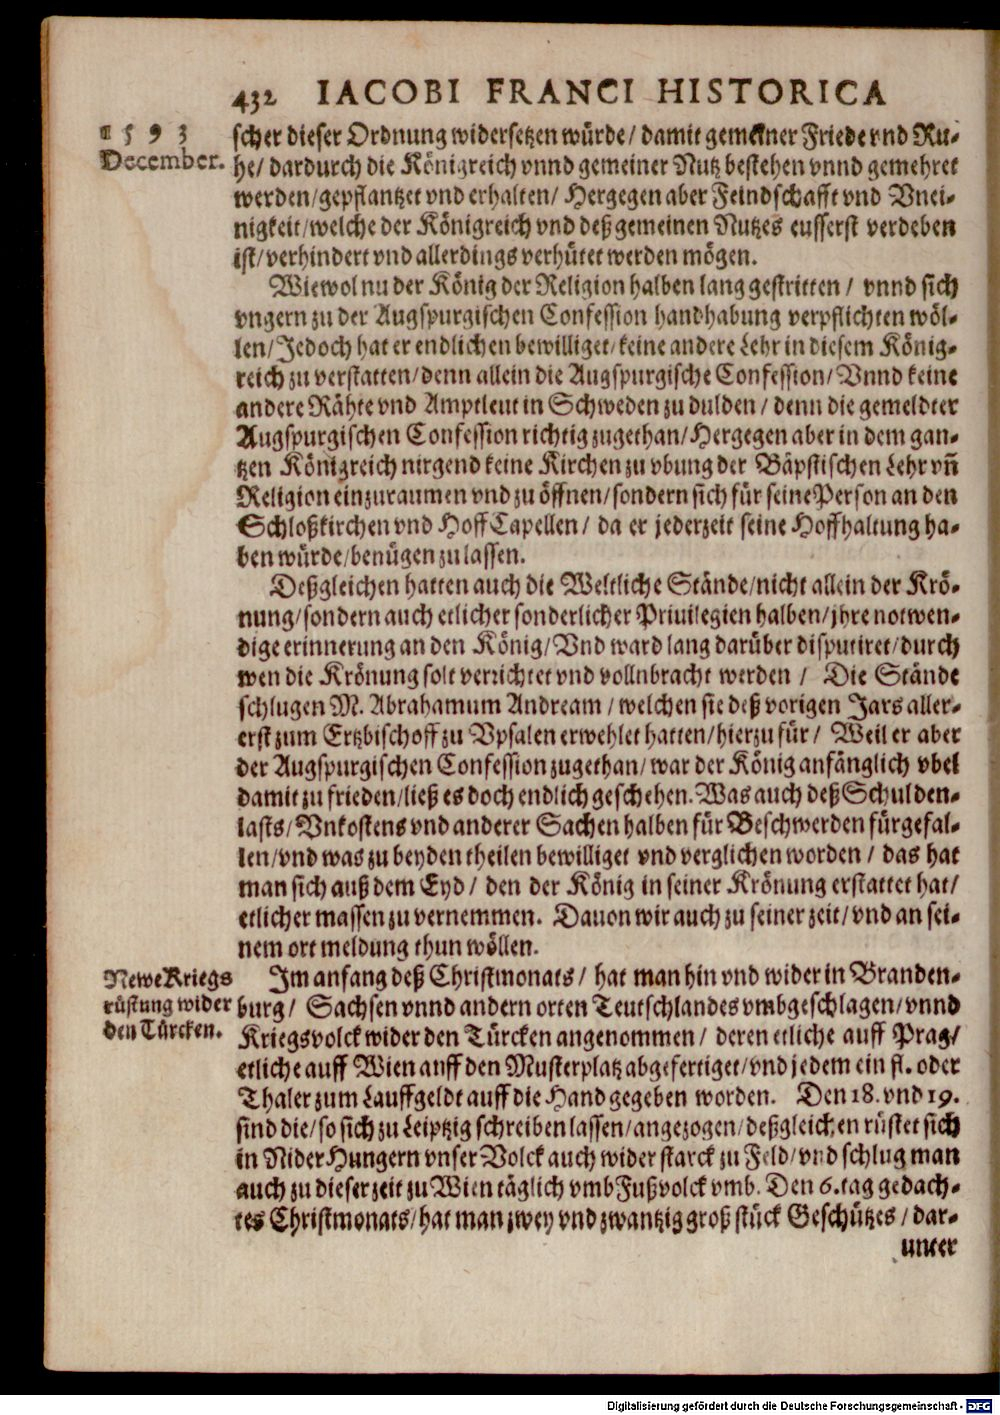 432 IACOBI FRANCI HISTORICA
1593
December.
scher dieser Ordnung widersetzen würde/ damit gemeiner Friede vnd Ru-
he/ dardurch die Königreich vnnd gemeiner Nutz bestehen vnnd gemehret
werden/gepflantzet vnd erhalten/ Hergegen aber Feindschafft vnd Vnei-
nigkeit/welche der Königreich vnd deß gemeinen Nutzes eusserst verdeben
ist/verhindert vnd allerdings verhütet werden mögen.
Wiewol nu der König der Religion halben lang gestritten / vnnd sich
vngern zu der Augspurgischen Confession handhabung verpflichten wöl-
len/Jedoch hat er endlichen bewilliget/keine andere Lehr in diesem König-
reich zu verstatten/denn allein die Augspurgische Confession/Vnnd keine
andere Rähte vnd Amptleut in Schweden zu dulden / denn die gemeldter
Augspurgischen Confession richtig zugethan/Hergegen aber in dem gan-
tzen Königreich nirgend keine Kirchen zu vbung der Bäpstischen Lehr vñ
Religion einzuraumen vnd zu öffnen/sondern sich für seine Person an den
Schloßkirchen vnd Hoff Capellen / da er jederzeit seine Hoffhaltung ha-
ben würde/benügen zu lassen.
Deßgleichen hatten auch die Weltliche Stände/nicht allein der Krö-
nung/sondern auch etlicher sonderlicher Priuilegien halben/jhre notwen-
dige erinnerung an den König/Vnd ward lang darüber disputiret/durch
wen die Krönung solt verrichtet vnd vollnbracht werden / Die Stände
schlugen M. Abrahamum Andream / welchen sie deß vorigen Jars aller-
erst zum Ertzbischoff zu Vpsalen erwehlet hatten/hierzu für / Weil er aber
der Augspurgischen Confession zugethan/war der König anfänglich vbel
damit zu frieden/ließ es doch endlich geschehen. Was auch deß Schulden-
lasts/Vnkostens vnd anderer Sachen halben für Beschwerden fürgefal-
len/vnd was zu beyden theilen bewilliget vnd verglichen worden / das hat
man sich auß dem Eyd / den der König in seiner Krönung erstattet hat/
etlicher massen zu vernemmen. Dauon wir auch zu seiner zeit/vnd an sei-
nem ort meldung thun wöllen.
Newe Kriegs
rüstung wider
den Türcken.
Im anfang deß Christmonats / hat man hin vnd wider in Branden-
burg / Sachsen vnnd andern orten Teutschlandes vmbgeschlagen/vnnd
Kriegsvolck wider den Türcken angenommen / deren etliche auff Prag/
etliche auff Wien auff den Musterplatz abgefertiget/vnd jedem ein fl. oder
Thaler zum Lauffgeldt auff die Hand gegeben worden. Den 18. vnd 19.
sind die/so sich zu Leiptzig schreiben lassen/angezogen/deßgleichen rüstet sich
in Nider Hungern vnser Volck auch wider starck zu Feld/vnd schlug man
auch zu dieser zeit zu Wien täglich vmb Fußvolck vmb. Den 6. tag gedach-
tes Christmonats/hat man zwey vnd zwantzig groß stück Geschützes / dar-
unter
Digitalisierung gefördert durch die Deutsche Forschungsgemeinschaft - DFG